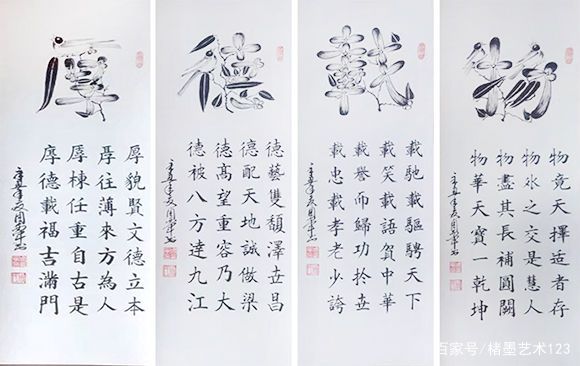 厚
厚貌賢文德立本
厚往薄來方為人
厚棟任重自古是
厚德載福吉滿門
德
德藝雙馥澤世昌
德配天地誠做梁
德高望重容乃大
德被八方達九江
載
載馳載驅騁天下
載笑載語賀中華
載譽而歸功於世
載忠載孝老少誇
物
物竞天擇造者存
物水之交是慧人
物盡其長補圓闕
物華天寶一乾坤
百家号/楮墨艺术123